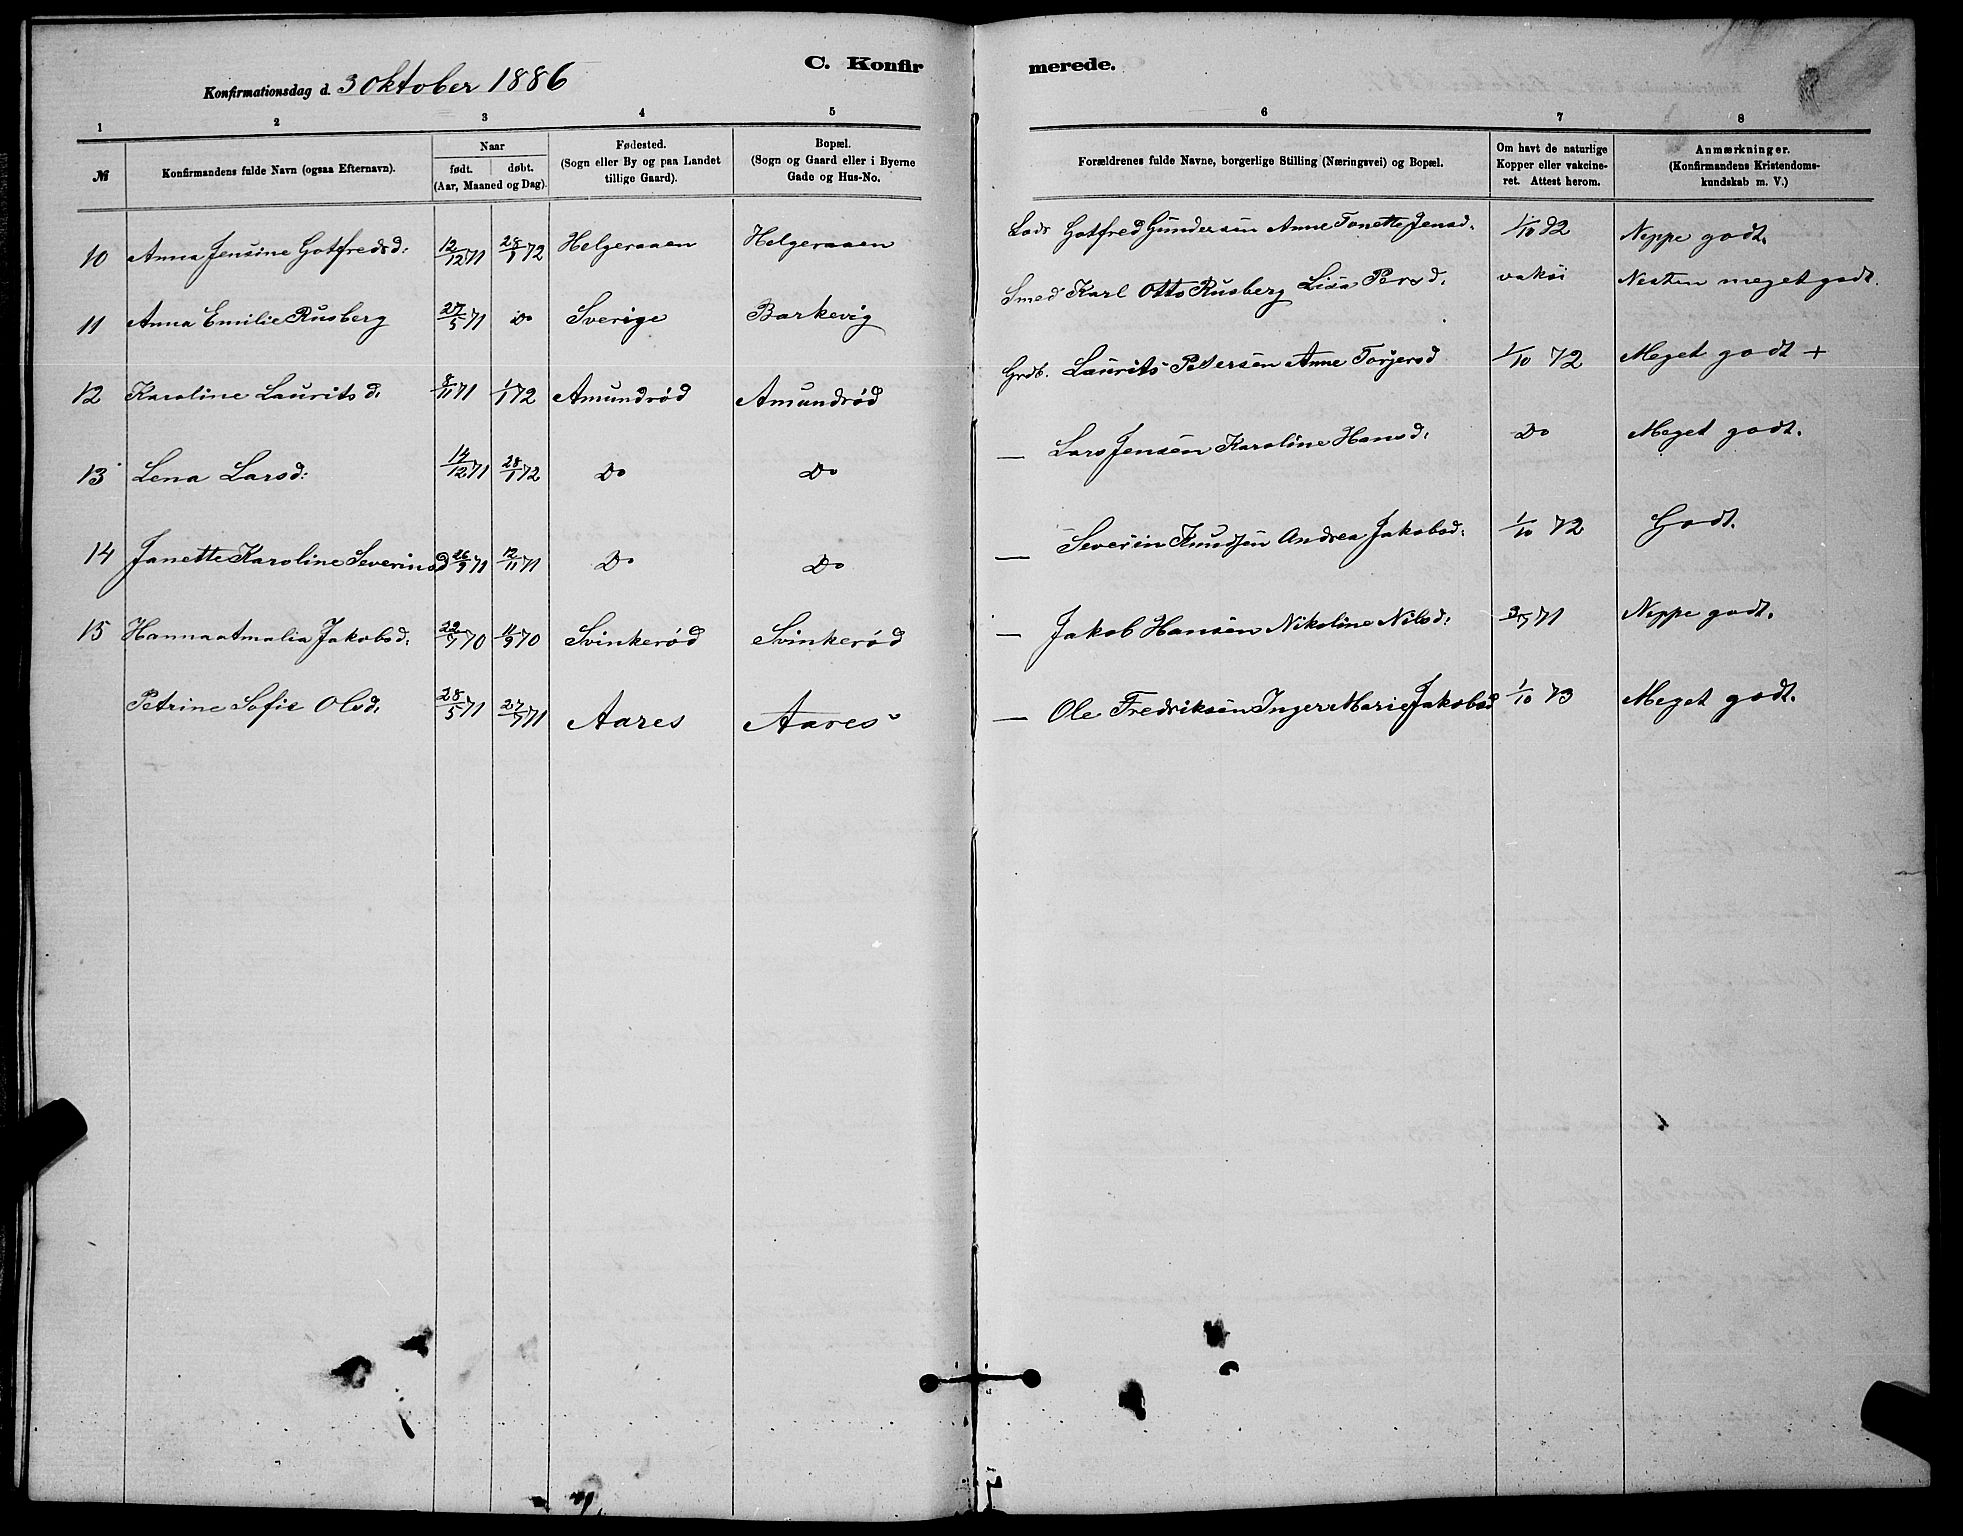 C. Konfirmerede.
Konfirmationsdag d. 3 Oktober 1886
1 2 3 4 5 6 7 8
№ | Konfirmandens fulde Navn (ogsaa Efternavn). | Naar født. døbt. (Aar, Maaned og Dag). | Fødested. (Sogn eller By og paa Landet tillige Gaard). | Bopæl. (Sogn og Gaard eller i Byerne Gade og Hus-No. | Forældrenes fulde Navne, borgerlige Stilling (Næringsvei) og Bopæl. | Om havt de naturlige Kopper eller vakcineret. Attest herom. | Anmærkninger. (Konfirmandens Kristendomskundskab m. V.)
10 | Anna Jensine Gotfredsd: | 12/12 71 | 28/1 72 | Helgeraaen | Helgeraaen | Lods Gotfred Gundersen Anne Tonette Jensd. | 1/10 92 | Neppe godt.
11 | Anna Emilie Rusberg | 27/5 71 | Do | Sverige | Barkevig | Smed Karl Otto Rusberg Lisa Persd. | Nesten meget godt.
12 | Karoline Lauritsd. | 8/11 71 | 1/1 72 | Amundrød | Amundrød | Grdb. Laurits Petersen Anne Torjersd | 1/10 72 | Meget godt +
13 | Lena Larsd: | 14/12 71 | 28/1 72 | Do | Do | — Lars Jensen Karoline Hansd: | Do | Meget godt.
14 | Janette Karoline Severinsd | 26/9 71 | 12/11 71 | Do | Do | — Severin Knudsen Andrea Jakobsd: | 1/10 72 | Godt.
15 | Hanna Amalia Jakobsd. | 22/7 70 | 11/9 70 | Svinkerød | Svinkerød | — Jakob Hansen Nikoline Nilsd: | Neppe godt.
Petrine Sofie Olsd. | 28/5 71 | 27/7 71 | Aares | Aares | — Ole Fredriksen Inger Marie Jakobsd | 1/10 73 | Meget godt.